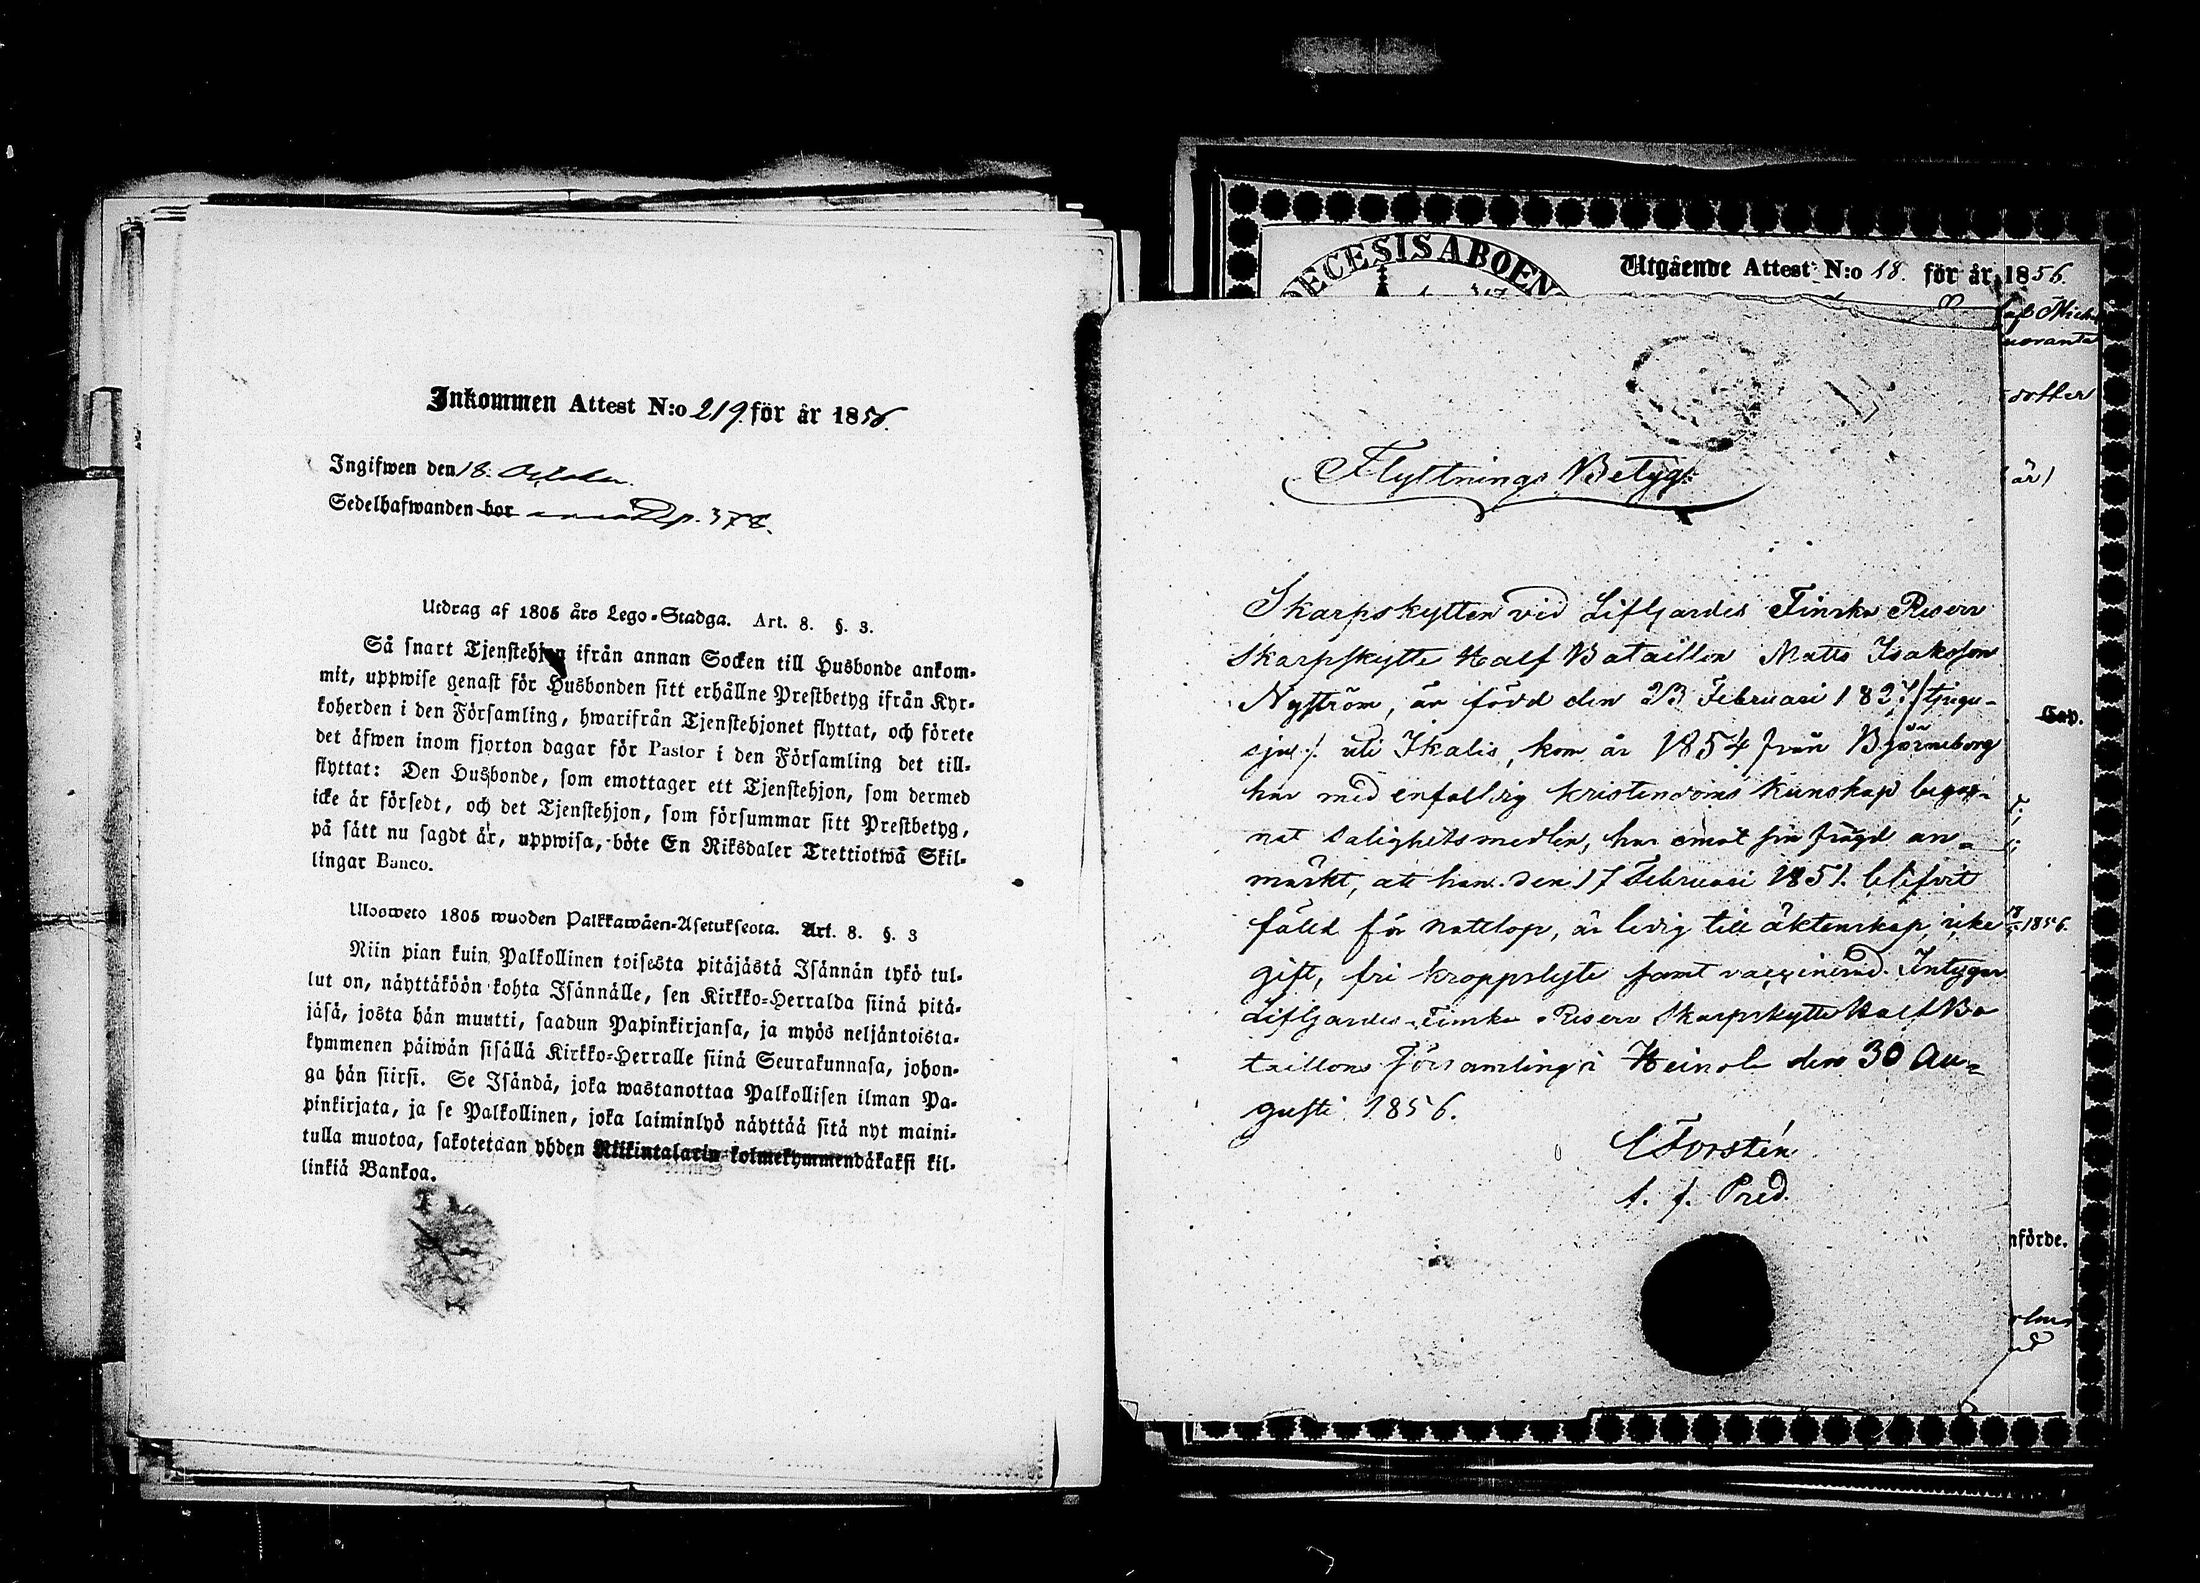 Inkommen Attest N:o 219. för år 1856.
Ingifwen den 18. October.
Sedelhafwanden bor p. 378.
Utdrag af 1805 års Lego-Stadga. Art. 8. §. 3.
Så snart Tjenstehjon ifrån annan Socken till Husbonde ankom-
mit, uppwise genast för Husbonden sitt erhållne Prestbetyg ifrån Kyr-
koherden i den Församling, hwarifrån Tjenstehjonet flyttat, och förete
det äfwen inom fjorton dagar för Pastor i den Församling det till-
flyttat: Den Husbonde, som emottager ett Tjenstehjon, som dermed
icke är försedt, och det Tjenstehjon, som försummar sitt Prestbetyg,
på sätt nu sagdt är, uppwisa, böte En Riksdaler Trettiotwå Skil-
lingar Banco.
Ulosweto 1805 wuoden Palkkawäen-Asetuksesta. Art. 8. §. 3
Niin pian kuin Palkollinen toisesta pitäjästä Isännän tykö tul-
lut on, näyttäköön kohta Isännälle, sen Kirkko-Herralda siinä pitä-
jäsä, josta hän muutti, saadun Papinkirjansa, ja myös neljäntoista-
kymmenen päiwän sisällä Kirkko-Herralle siinä Seurakunnasa, johon-
ga hän siirsi. Se Isändä, joka wastanottaa Palkollisen ilman Pa-
pinkirjata, ja se Palkollinen, joka laiminlyö näyttää sitä nyt maini-
tulla muotoa, sakotetaan yhden Riikintalarin kolmekymmendäkaksi kil-
linkiä Bankoa.
DECESIS ABOEN
Utgående Attest N:o 18. för år 1856.
Flyttnings Betyg.
Skarpskytten vid Lifgardes Finska Reserv
Skarpskytte Half Bataillon Matts Isaksson
Nyström, är född den 23 Februari 1827 /tjugu-
sju/. uti Ikalis, kom år 1854 från Björneborg
har med enfalldig kristendoms kunskap begag-
nat salighetsmedlen, har emot sin frägd an-
märkt, att han den 17 Februari 1851 blifvit
fälld för nattlop, är ledig till äktenskap, icke
gift, fri kroppslyte samt vaccinerad. Intygar
Lifgardes Finska Reserv Skarpskytte Half Ba
taillons Församling i Heinola den 30 Au-
gusti 1856.
C Forstén
t. f. Pred.
af Mich
dotter
år)
Cap.
1856.
nförde.